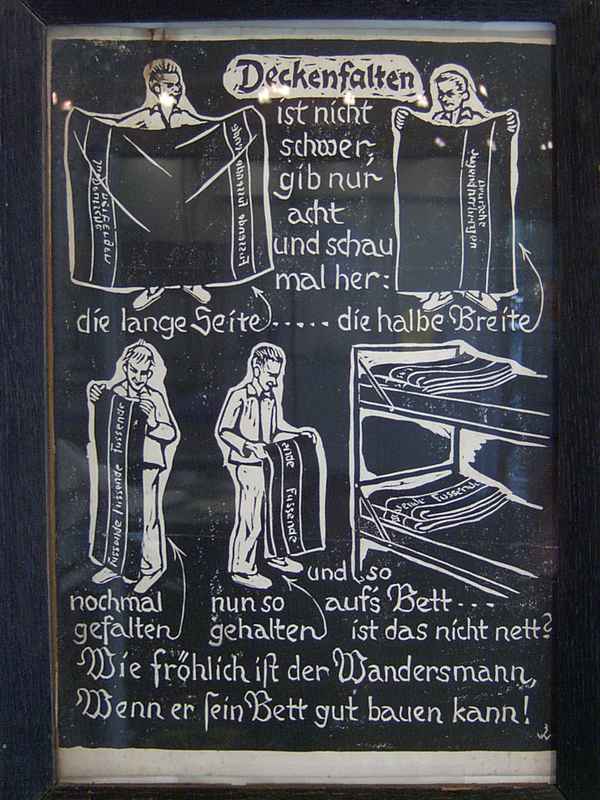 Deckenfalten
ist nicht
schwer,
gib nur
acht
und schau
mal her:
Fussende Fussende
Deutsche
Jugendherbergen
die lange Seite ..... die halbe Breite
Fussende Fussende Fussende
Fussende
Fussende
und so
nochmal nun so aufs Bett ...
gefalten gehalten ist das nicht nett?
Wie fröhlich iſt der Wandersmann,
Wenn er ſein Bett gut bauen kann!